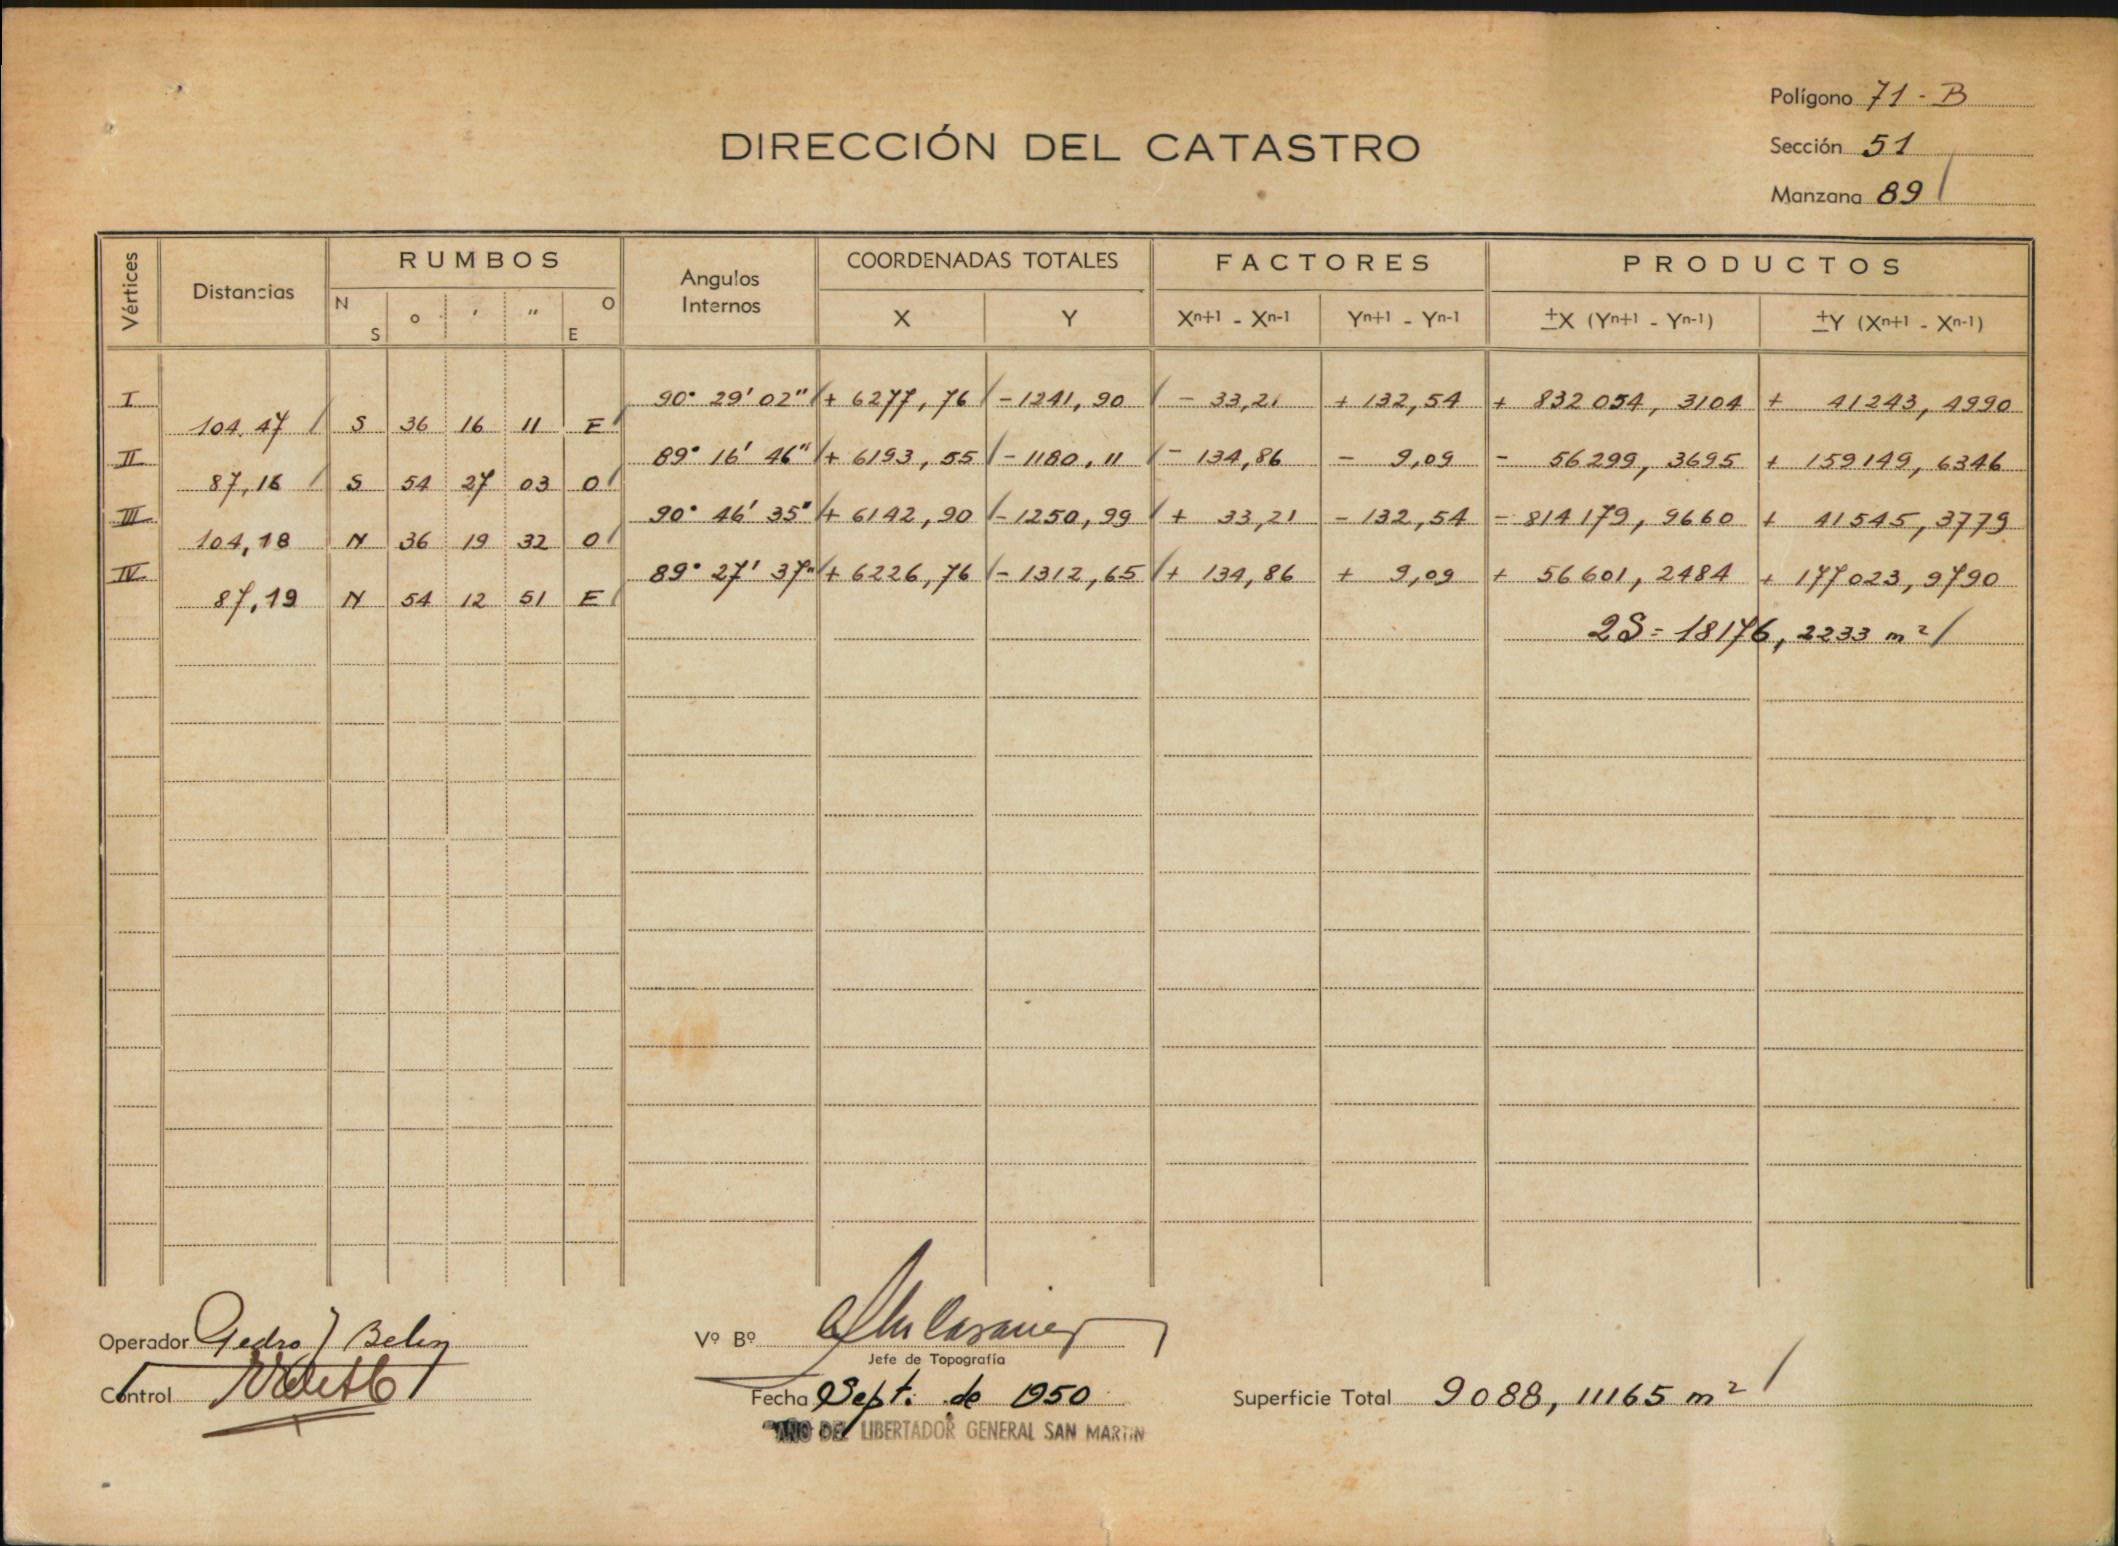 Polígono 71 - B
DIRECCIÓN DEL CATASTRO
Sección 51
Manzana 89
Vértices Distancias RUMBOS Angulos Internos COORDENADAS TOTALES FACTORES PRODUCTOS
N S o ' " O E X Y Xn+1 - Xn-1 Yn+1 - Yn-1 ±X (Yn+1 - Yn-1) ±Y (Xn+1 - Xn-1)
I 90° 29' 02" + 6277,76 - 1241,90 - 33,21 + 132,54 + 832054,3104 + 41243,4990
104.47 S 36 16 11 E
II 89° 16' 46" + 6193,55 - 1180,11 - 134,86 - 9,09 - 56299,3695 + 159149,6346
87,16 S 54 27 03 O
III 90° 46' 35" + 6142,90 - 1250,99 + 33,21 - 132,54 - 814179,9660 + 41545,3779
104,18 N 36 19 32 O
IV 89° 27' 37" + 6226,76 - 1312,65 + 134,86 + 9,09 + 56601,2484 + 177023,9790
87,19 N 54 12 51 E
2S = 18176,2233 m²
Operador Pedro J Belin
Vº Bº
Jefe de Topografía
Control
Fecha Sept. de 1950
Superficie Total 9088,11165 m²
AÑO DEL LIBERTADOR GENERAL SAN MARTIN